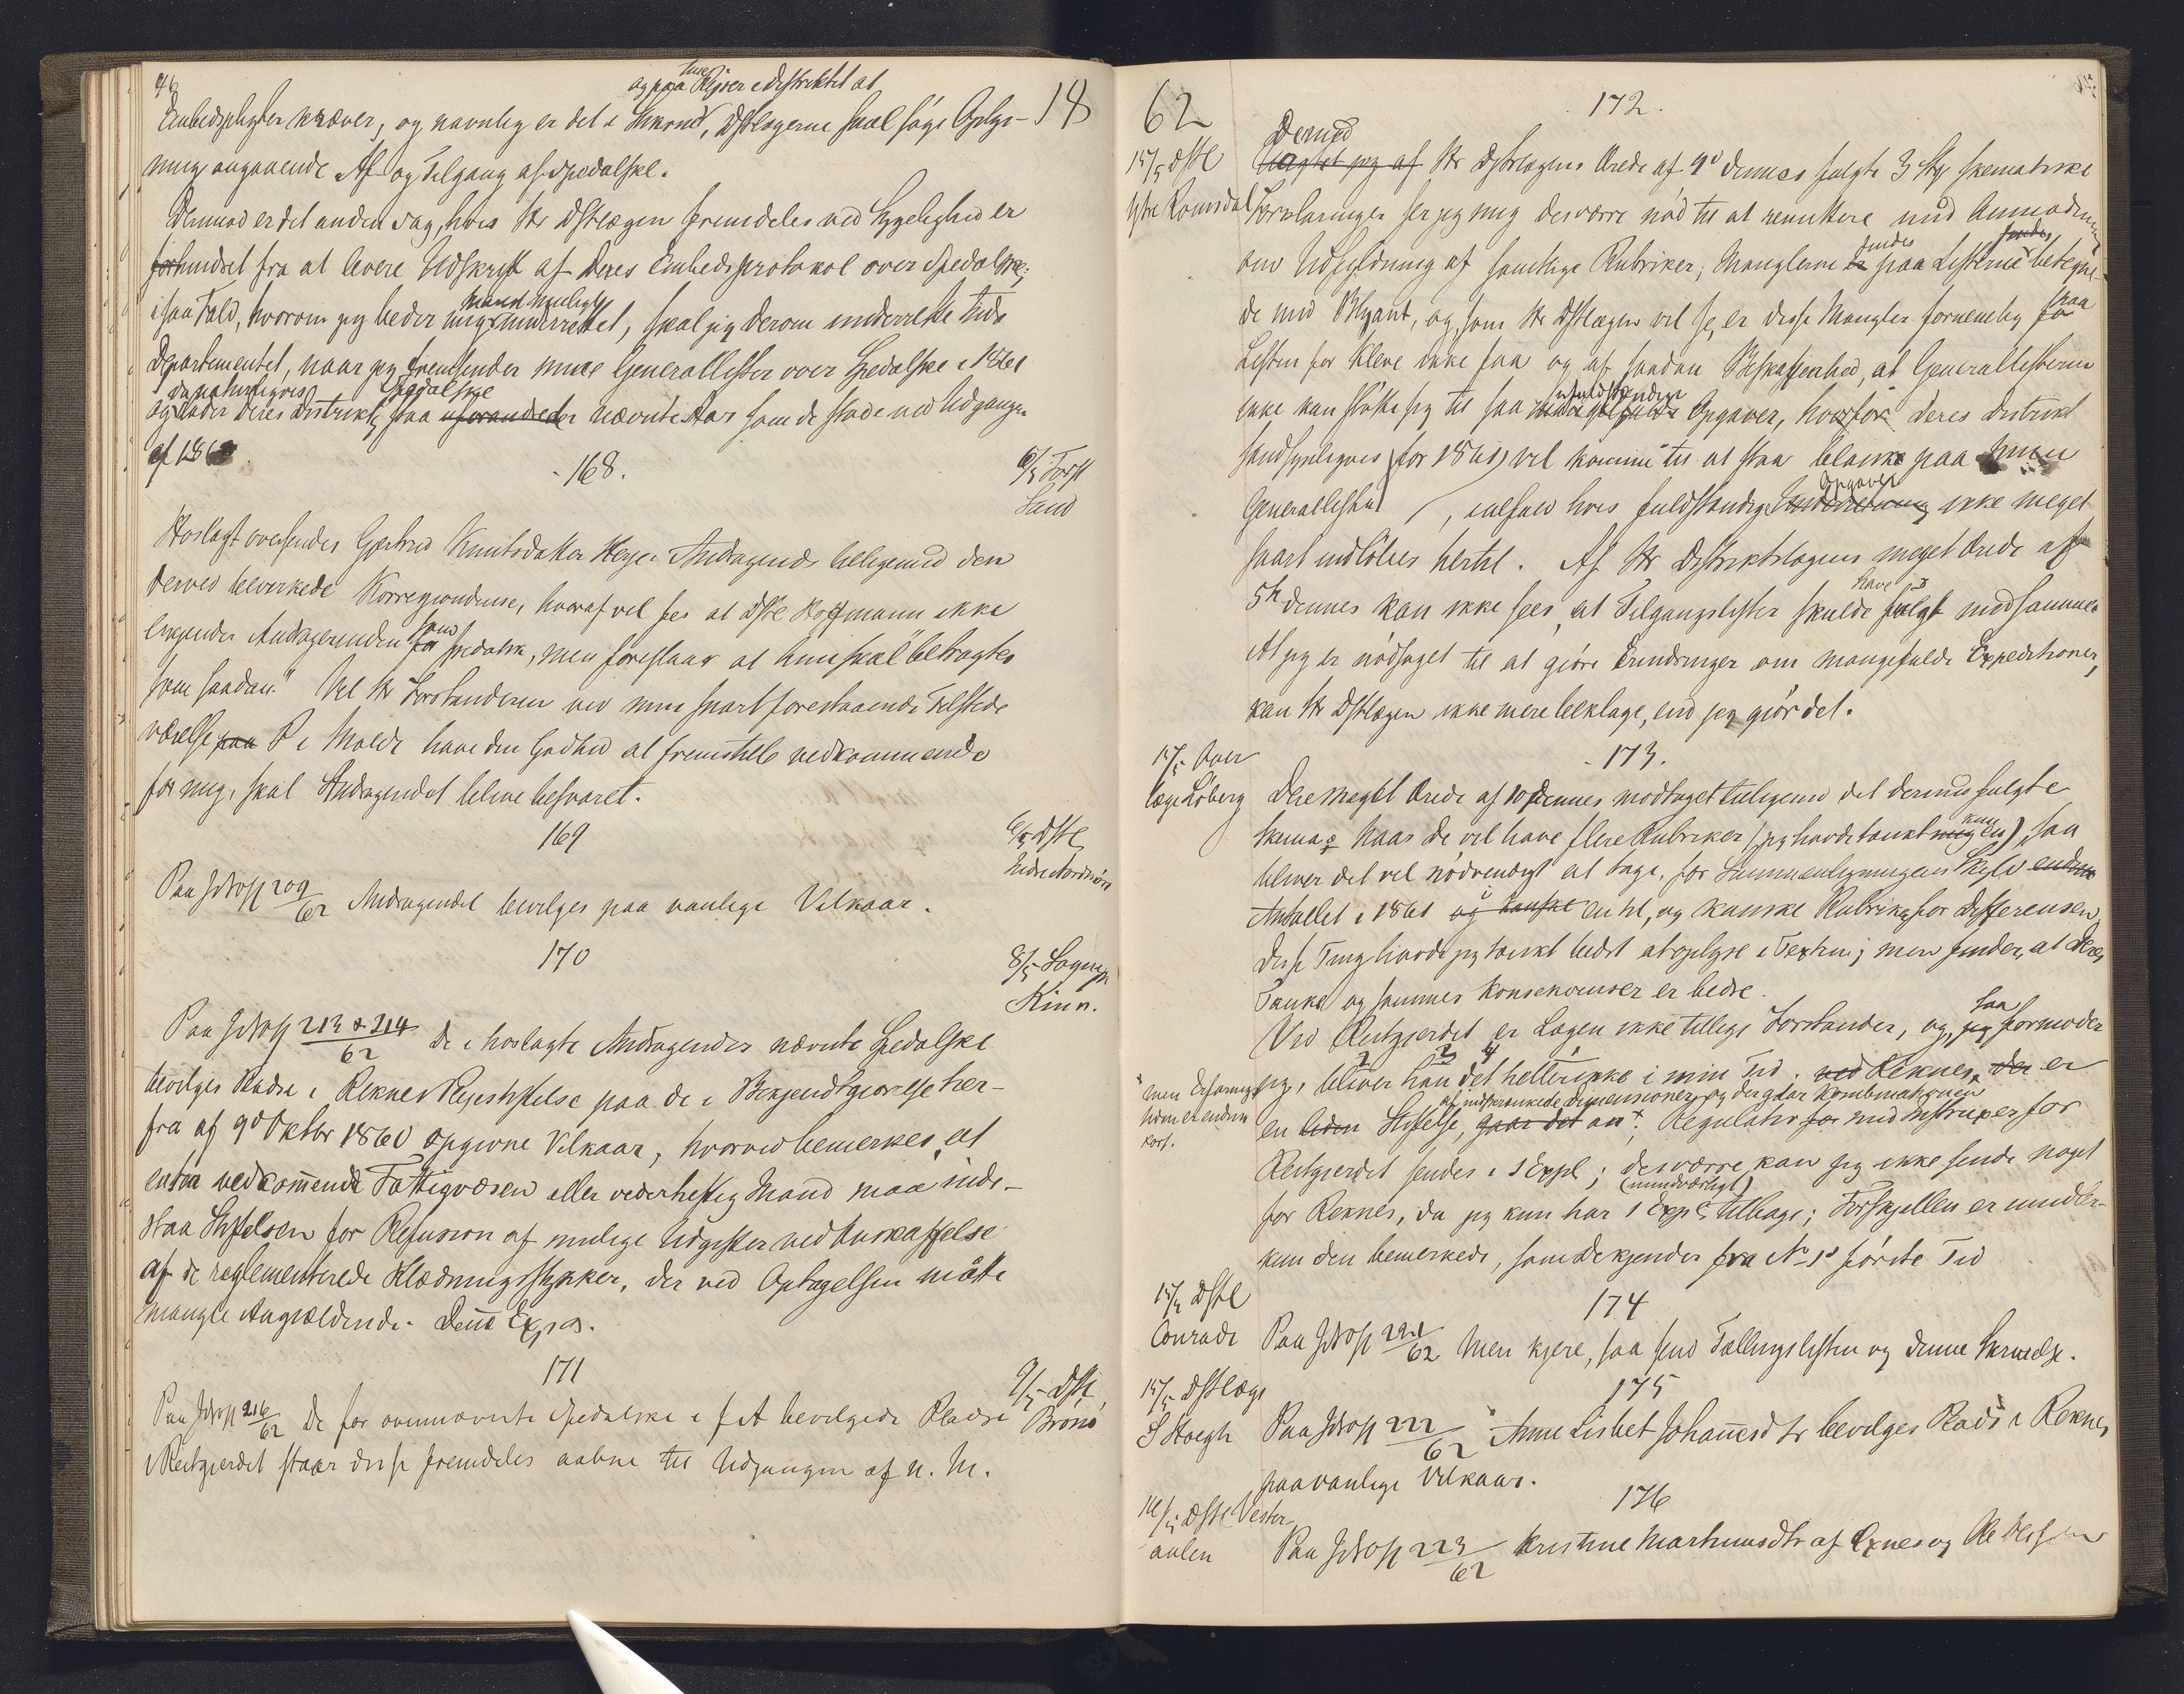 96
og paa sine Rejser i Distriktet at
18
Embedspligter kræver, og navnlig er det i Sinkond, DstLægerne skal søge Oplys-
ning angaaende Af- og Tilgang af Spedalske.
Dermed er det anden Sag, hvis Hr DstLægen fremdeles ved Sygelighed er
forhindret fra at levere Udskrift af Deres Embedsprotokol over Spedalske;
i saa Fald, hvorom jeg beder mig underrettet, skal jeg derom underrette Inds
Departementet, naar jeg fremsender mine Generallister over Spedalske i 1861
da naturligvis Spedalske
og lader Deres Distrikts staa uforandrede nævnte Aar som de stode ved Udgangen
af 1860.
168.
6/5 Forst
Lund
Hoslagt oversendes Gjertrud Knutsdatter Andragende tilligemed den
derved bevirkede Korrespondense, hvoraf vil sees at DstL Hoffmann ikke
erkjender Andragerinden som for spedalsk, men foreslaar at hun skal "betragtes
som saadan." Vil Hr Forstanderen ved min snart forestaaende Tilstede
værelse paa R i Molde have den Godhed at fremstille vedkommende
for mig, skal Andragendet blive besvaret.
169
6/5 DstL
Indre Nordmøre
Paa JNo 209/62 Andragendet bevilges paa vanlige Vilkaar.
170
8/5 Sognepr
Kinn.
Paa JNo 213 & 214/62 De i hoslagte Andragender nævnte Spedalske
bevilges Pladse i Reknes Plejestiftelse paa de i Bekjendtgjørelse her-
fra af 9d Oktbr 1860 opgivne Vilkaar, hvorved bemerkes, at
enten vedkommende Fattigvæsen eller vederheftig Mand maa inde-
staa Stiftelsen for Refusion af mulige Udgifter ved Anskaffelse
af de reglementerede Klædningsstykker, der ved Optagelsen måtte
mangle Angjældende. Denne Exp
171
9/5 DstL
Brønø
Paa JNo 216/62 De for ovennævnte Spedalske i bevilgede Pladse
i Reitgjerdet staar disse fremdeles aabne til Udgangen af n. M.
62
172.
15/5 DstL
Ytre Romsdal
Dermed
Hr Distrlægens Ærede af 9d dennes fulgte 3 Stkr skematiske
Forklaringer ser jeg mig desværre nød til at remittere med Anmodning
om Udfyldning af samtlige Rubriker; Manglerne er findes paa Listerne betegne-
de med Blyant, og, som Hr DstLægen vil se, er disse Mangler fornemlig paa
Listen for Kleve ikke faa og af saadan Beskaffenhed, at Generallisterne
ikke kan støtte sig til saa ufuldstændige Opgaver, hvorfor Deres Distrikt
sandsynligvis (for 1861) vil komme til at staa blank paa min
Generalliste, ialfald hvis fuldstændige Opgaver ikke meget
snart indløber hertil. Af Hr Distriktslægens meget Ærede af
5te dennes kan ikke sees, at Tilgangslister skulde have fulgt med samme.
At jeg er nødsaget til at giøre Erindringer om mangefulde Expeditioner,
kan Hr DstLægen ikke mere beklage, end jeg giør det.
173.
15/5 Over
læge Løberg
Deres meget Ærede af 10 Dennes modtaget tilligemed det dermed fulgte
Skema. Naar De vil have flere Rubriker (jeg havde tænkt mig kun en), saa
bliver det vel nødvendigt at tage, for Sammenligningens Skyld
Antallet i 1861 og kanske en til, og kanske Rubrik for Differensen,
disse Ting havde jeg tænkt bedst at oplyse i Texten; men finder, at Deres
Tanke og sammes Konsekvenser er bedre.
Ved Reitgjerdet er Lægen ikke tillige Forstander, og, saa formoder
jeg, bliver han det heller ikke i min Tid. ved Reknes, der er
af indskrænkede Dimensioner, og der gaar Kombinationen
en liden Stiftelse, gaar det an; Regulativ for med Instruxer for
men Erfaringstiden er endnu kort.
Reitgjerdet sendes i 1 Expl; desværre kan jeg ikke sende noget
for Reknes, da jeg kun har 1 Expl tilbage; Forskjellen er imidler-
kun den bemerkede, som De kjender fra No 1s første Tid
174
15/5 DstL
Conradi
Paa JNo 221/62 Men kjere, saa send Tællingslisten og denne Skrivelse.
175
15/5 DstLæge
S Høegh
Paa JNo 222/62 Anne Lisbet Johannesdtr bevilges Plads i Reknes
paa vanlige Vilkaar.
176
16/5 DstL Vester-
aalen
Paa JNo 223/62 Kristine Martinusdtr af Øxnes og